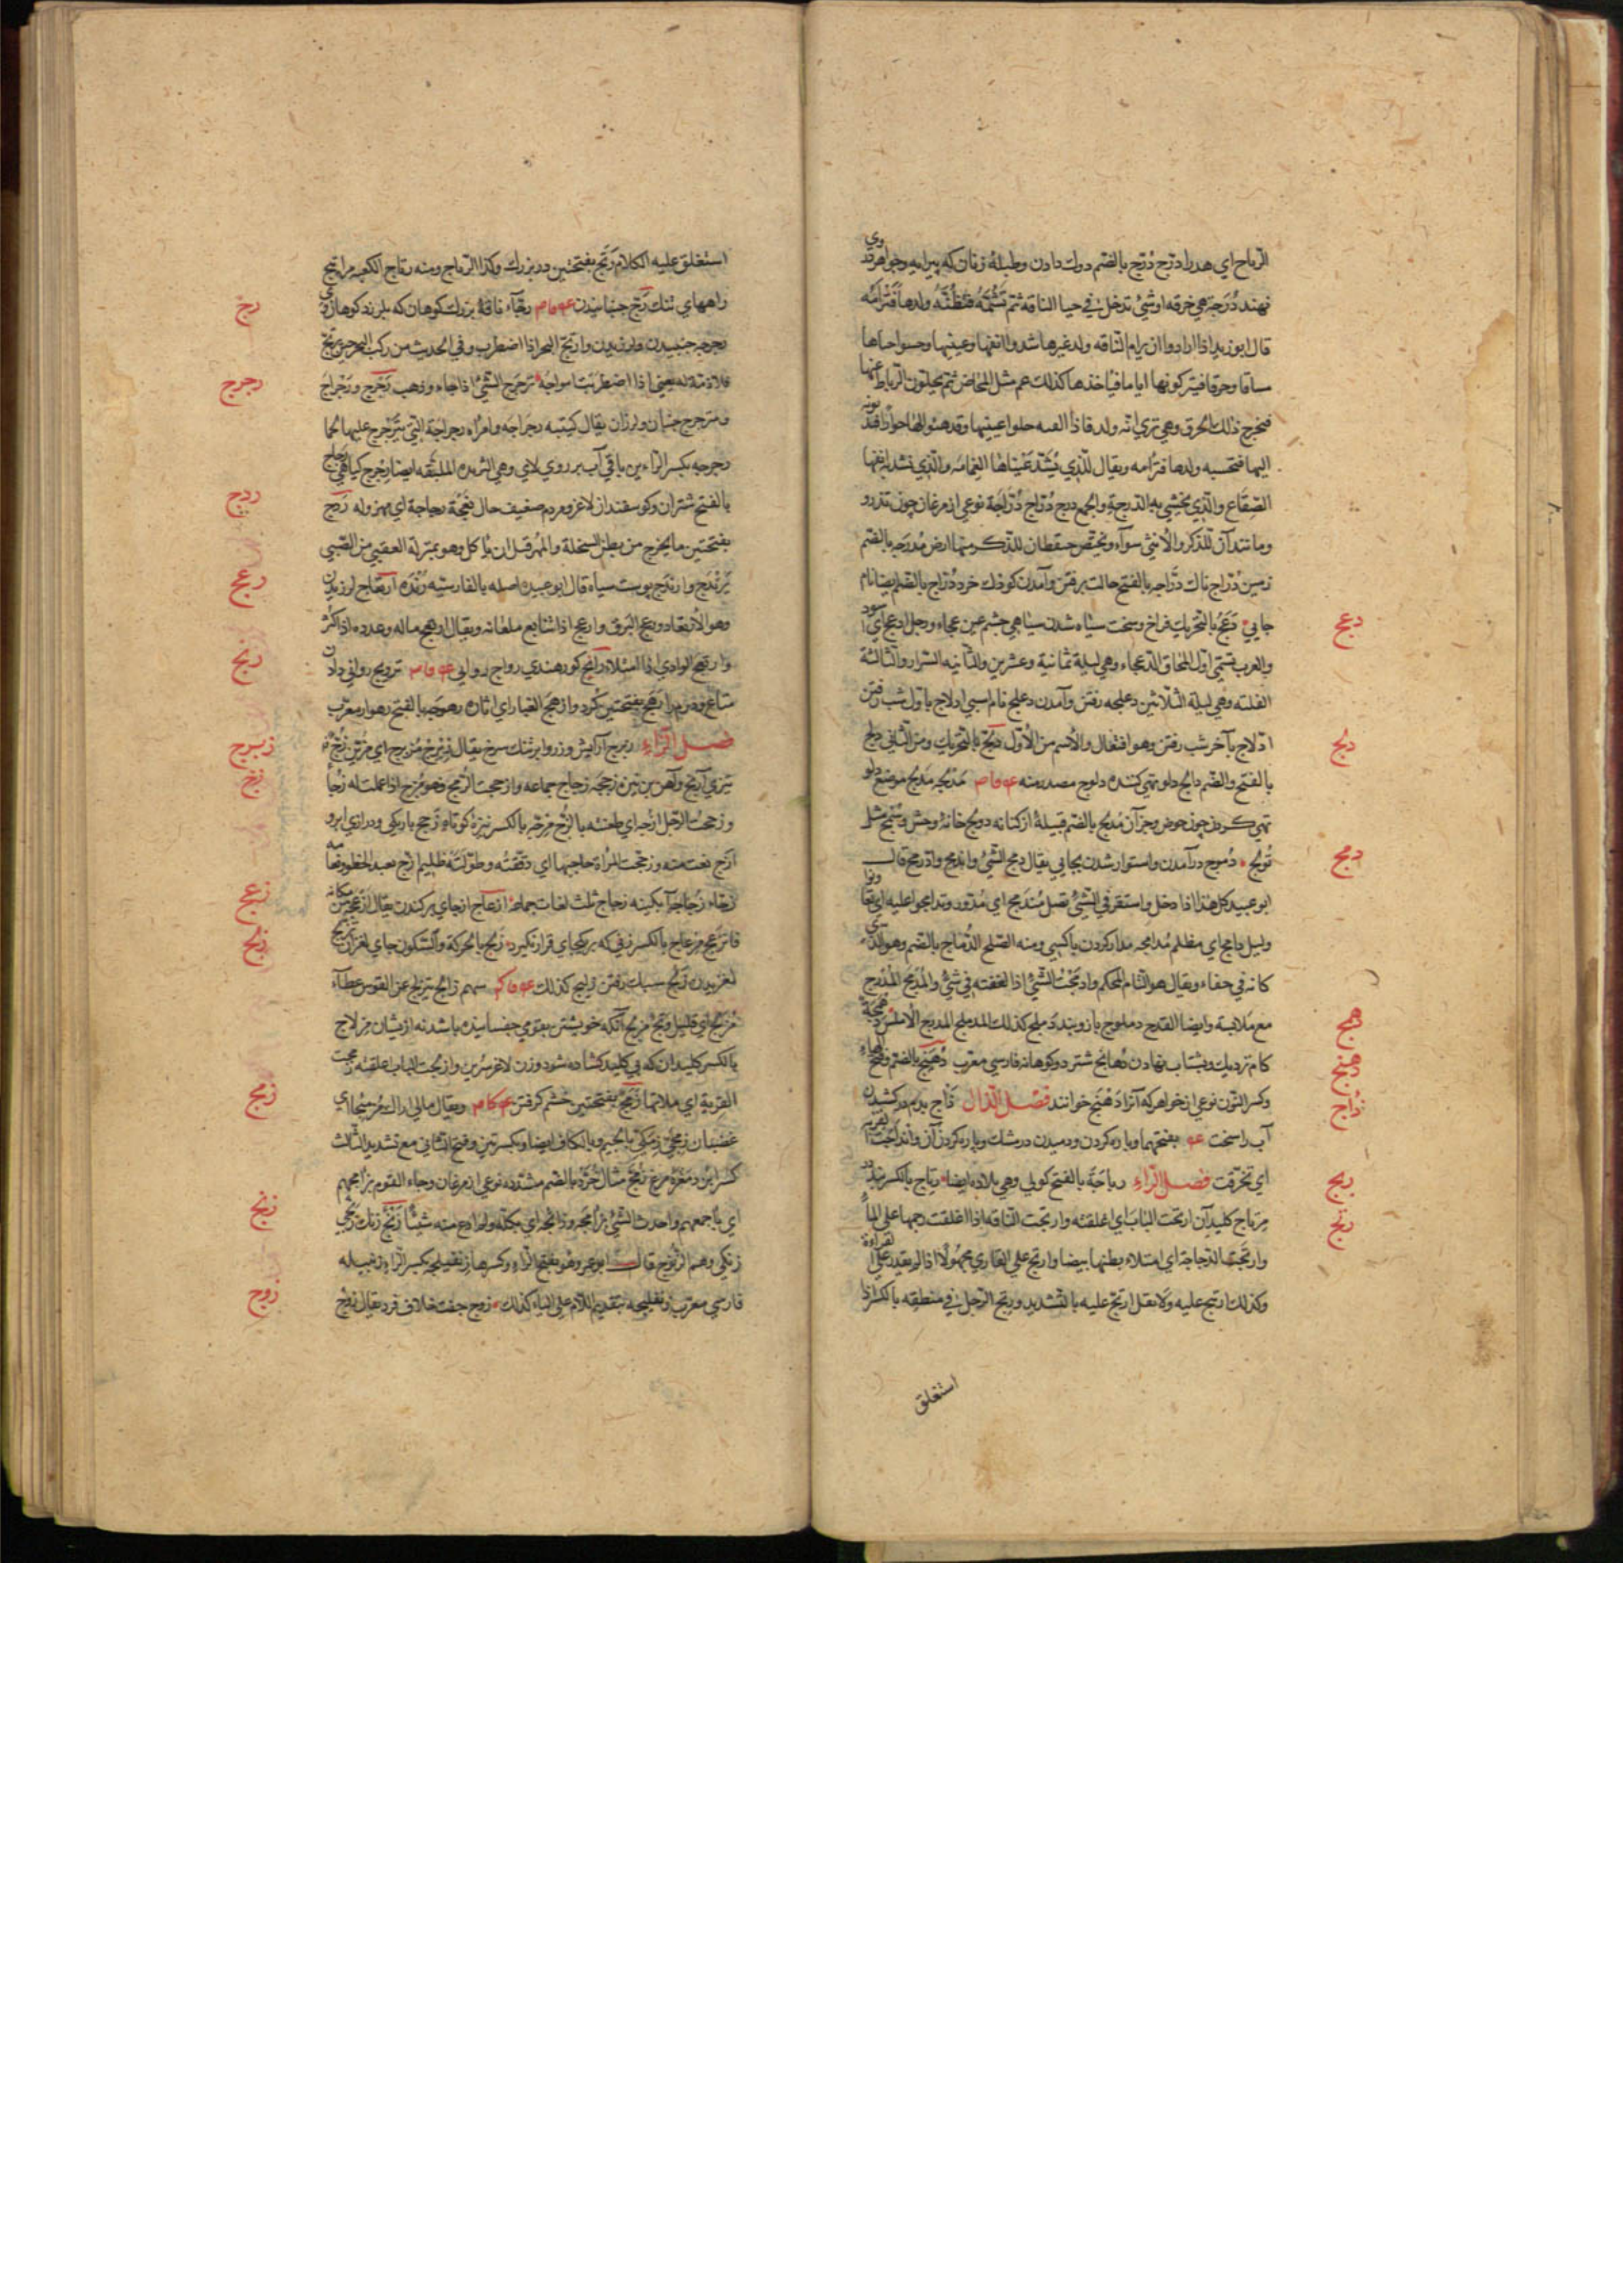 الرياح اي هدرا درج دُرج بالضم دولت دادن وطبلهٔ زنان كه پيرايه وجواهر درو
نهند دُرَجه هي خرقه او شئ تدخل في حيا الناقه ثم تَشُمُّهُ فتظُنُّهُ ولدها فَتَرْأَمُه
قال ابو زيد اذا ارادوا ان يرام الناقه ولد غيرها شدوا انفها وعينيها وحسوا حياها
فيتركونها اياما فياخذها كذلك غم مثل المخاض ثم يحلون الرباط عنها
فيخرج ذلك الخرق وهي تري انه ولد فاذا القته حلوا عينيها وقد هيئوا لها حوارا فيدنونه
اليها فتحسبه ولدها فترأمه ويقال للذي يُشَدّ عَيْناها الغمامه والذي يشد انفها
الصِقَاع والذي يحشي به الدرجة والجمع درج دُرّاج دُرّاجَة نوعي از مرغان چون تذرو
وما نند آن للذكر والانثي سوآء ويختص حيقطان للذكر منها ارض مُدرَجه بالضم
زمين دُرّاج ناك درّاجه بالفتح حالت بر فتن وآمدن كودك خرد دُرّاج بالضم ايضا نام
جايي دَعَج بالتحريك فراخ وسخت سياه شدن سياهي چشم عين دعجاء ورجل ادعج اي اسود
والعرب تسمي اول المحاق الدعجاء وهي ليلة ثمانية وعشرين والثانيه السرار والثالثة
الفلته وهي ليلة الثلاثين دعلجه رفتن وآمدن دعلج نام اسپي ادلاج باول شب رفتن
ادّلاج بآخر شب رفتن وهو افتعال والاسم من الاول دَلَج بالتحريك ومن الثاني دلج
بالفتح والضم دالج دلو تهي كننده دلوج مصدر منه ع ف ا ص مَدْلَجه مَدلج موضع دلو
تهي كردن چون حوض وجز آن مُدلج بالضم قبيلهٔ از كنانه دولج خانهٔ وحش
تَولج دُموج درآمدن واستوار شدن بجايي يقال دمج الشئ واندمج وادرمج قال
ابو عبيد كل هذا اذا دخل واستقر في الشئ نصل مُندَمِج اي مُدَوّر وتدامجوا عليه اي تعاونوا
وليل دامج اي مظلم مُدامجه مدارا كردن با كسي ومنه الصلح الدُّماج بالضم وهو الذي
كانه في خفاء ويقال هو التام المحكم وادمَجْتُ الشئ اذا لففته في شئ والمُدمَج المُدرَج
مع مَلابسة وايضا القدح دملوج بازوبند دَملج كذلك المدملج المدرج الاملس دَهْمَجَة
كام نزديك وبشتاب نهادن دهانج شتر دو كوهانه فارسي معرب دُهْنَج بالضم وفتح الهاء
وكسر النون نوعي از جواهر كه آنرا دهنج خوانند فصل الذال ذأج بدم دركشيدن
آب را سخت ع ف بفتحهما وپاره كردن ودميدن در مشك وپاره كردن آن وانذأجت القربه
اي تخرقت فصل الراء رباجَة بالفتح كولي وهي بلادة ايضا رتاج بالكسر در
مِرتاج كليدآن ارتجت الباب اي اغلقته وارتجت الناقه اذا اغلقت رحمها علي الماء
وارتجت الدجاجة اي امتلاء بطنها بيضا وارتج علي القاري مجهُولا اذا لم يقدر علي القراءة
وكذلك ارتتج عليه ولا تقل ارتجّ عليه بالتشديد ورتج الرجل في منطقه بالكسر اذا
استغلق
دعج
دلج
دمج
دهمج
دهنج
ذأج
ربج
رتج
استغلق عليه الكلام رَتَج بفتحتين در بزرك وكذا الرتاج ومنه رتاج الكعبه مراتج
راههاي تنك رَجّ جنبانيدن ع ف ا ص رجّآء ناقهٔ بزرك كوهان كه بلرزد كوهان وي
رجرجه جنبيدن ولرزيدن وارتجّ البحر اذا اضطرب وفي الحديث من ركب البحر حين يرتجّ
فلا ذمة له يعني اذا اضطربت امواجُهُ ترجرج الشئ اذا جاء وذهب رَجْرَج ورَجْراج
ومترجرج جنبان ولرزان يقال كتيبه رجراجَه وامرأه رجراجة التي يترجرج عليها لحمها
رجرجه بكسر الراءين باقي آب بر روي لاي وهي الثريده الملبّقه ايضا رِجْرِج كياهي رجاج
بالفتح شتران وكوسفندان لاغر ومردم ضعيف حال نعجة رجاجة اي مهزوله رَدَج
بفتحتين ما يخرج من بطن السخلة والمُهر قبل ان يأكل وهو بمنزلة العقي من الصبي
يَرَنْدَج وارندَج پوست سياه قال ابو عبيده اصله بالفارسيه رَنْده ارتعاج لرزيدن
وهو الارتعاد ورعج البَرق وارعج اذا تتابع لمعانه ويقال ارتعج ماله وعدده اذا كثر
وارتعج الوادي اذا امتلاء رانج كوز هندي رواج روايي ع ف ا ص ترويج روايي دادن
متاع رَهَج بفتحتين كرد وارهج الغبار اي اثاره رهوجه بالفتح رهوار معرب
فصل الزاء زبرج آرايش وزر وابر تنك سرخ يقال زبرج مُزَبرج اي مزين زُجّ
تيزي آرنج وآهن بن نيزه زِجَجَه زجاج جماعه وازججت الرمح وهو مُزَجّ اذا عملت له زُجّا
وزججت الرّجل ازجه اي طعنته بالزج مزجّه بالكسر نيزهٔ كوتاه زَجج باريكي ودرازي ابرو
ازَجّ نعت منه وزججت المرأة حاجبها اي دققته وطوّلته ظليم ازج بعيد الخطو ونعامه
زجّاء زُجاجَه آبگينه زجاج ثلث لغات جماعه ازعاج از جاي بركندن يقال ازعجه من مكانه
فانزعج مزعاج بالكسر زني كه بر يكجاي قرار نگيرد زَلج بالحركة والسكون جاي لغزان
لغزيدن زَلج سبك رفتن زليج كذلك ع ف ا ك سهم زالج يتزلج عن القوس عطآء
مُزَلّج اي قليل وتح مُزَلّج آنكه خويشتن بقومي چفسانيده باشد نه از يشان مزلاج
بالكسر كليدان كه بي كليد كشاده شود وزن لاغر سرين وازلجت الباب اغلقته زمجت
القربة اي ملأتها زمَج بفتحتين خشم كرفتن ع ك ا م ويقال مالي اراك مُزْمَئِجّا اي
غضبان زمجّي زمكّي بالجيم وبالكاف ايضا وبكسرتين وفتح الثاني مع تشديد الثالث
كسر ابن دم غزه مرغ زُمَّج مثال خُرَّد بالضم مشدده نوعي از مرغان وجاء القوم بزامجهم
اي باجمعهم واخذت الشئ بزامجه وزأمجه اي بكلّه ولم ادع منه شيئا زَنْج زنك زنجي
زنكي وهم الزنوج قال ابو عمر وهو بفتح الزاء وكسرها زنفيلجه بكسر الزاء زنبيله
فارسي معرب زنفليجه بتقديم اللام علي الياء كذلك زوج جفت خلاف فرد يقال زَوْج
رجّ
رجرج
ردج
رعج
رنج
زبرج
زجّ
زعج
زلج
زمج
زنج
زوج